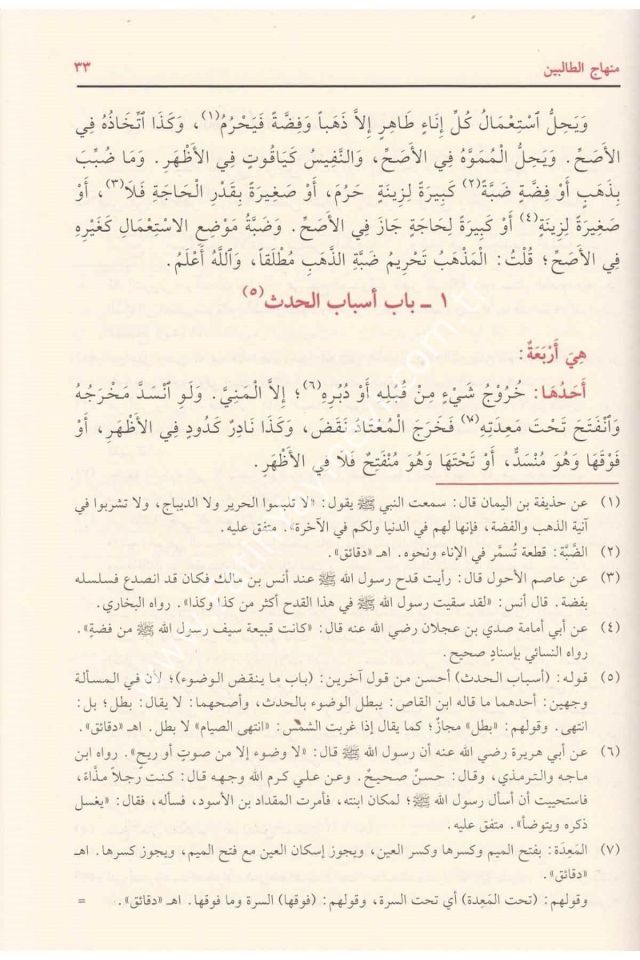 منهاج الطالبين
٣٣
وَيَحِلُّ ٱسْتِعْمَالُ كُلِّ إِنَاءٍ طَاهِرٍ إِلاَّ ذَهَباً وَفِضَّةً فَيَحْرُمُ(١)، وَكَذَا ٱتِّخَاذُهُ فِي
الأَصَحِّ. وَيَحِلُّ الْمُمَوَّهُ فِي الأَصَحِّ، وَالنَّفِيسُ كَيَاقُوتٍ فِي الأَظْهَرِ. وَمَا ضُبِّبَ
بِذَهَبٍ أَوْ فِضَّةٍ ضَبَّةً(٢) كَبِيرَةً لِزِينَةٍ حَرُمَ، أَوْ صَغِيرَةً بِقَدْرِ الْحَاجَةِ فَلاَ(٣)، أَوْ
صَغِيرَةً لِزِينَةٍ(٤) أَوْ كَبِيرَةً لِحَاجَةٍ جَازَ فِي الأَصَحِّ. وَضَبَّةُ مَوْضِعِ الاسْتِعْمَالِ كَغَيْرِهِ
فِي الأَصَحِّ؛ قُلْتُ: الْمَذْهَبُ تَحْرِيمُ ضَبَّةِ الذَّهَبِ مُطْلَقاً، وَٱللَّهُ أَعْلَمُ.
١ ـ باب أسباب الحدث(٥)
هِيَ أَرْبَعَةٌ:
أَحَدُهَا: خُرُوْجُ شَيْءٍ مِنْ قُبُلِهِ أَوْ دُبُرِهِ(٦)؛ إِلاَّ الْمَنِيَّ. وَلَوِ ٱنْسَدَّ مَخْرَجُهُ
وَٱنْفَتَحَ تَحْتَ مَعِدَتِهِ(٧) فَخَرَجَ الْمُعْتَادُ نَقَضَ، وَكَذَا نَادِرٌ كَدُودٍ فِي الأَظْهَرِ، أَوْ
فَوْقَهَا وَهُوَ مُنْسَدٌّ، أَوْ تَحْتَهَا وَهُوَ مُنْفَتِحٌ فَلاَ فِي الأَظْهَرِ.
(١) عن حذيفة بن اليمان قال: سمعت النبي ﷺ يقول: «لا تلبسوا الحرير ولا الديباج، ولا تشربوا في
آنية الذهب والفضة، فإنها لهم في الدنيا ولكم في الآخرة». متفق عليه.
(٢) الضَّبَّة: قطعة تُسمَّر في الإناء ونحوه. اهـ «دقائق».
(٣) عن عاصم الأحول قال: رأيت قدح رسول الله ﷺ عند أنس بن مالك فكان قد انصدع فسلسله
بفضة. قال أنس: «لقد سقيت رسول الله ﷺ في هذا القدح أكثر من كذا وكذا». رواه البخاري.
(٤) عن أبي أمامة صدي بن عجلان رضي الله عنه قال: «كانت قبيعة سيف رسول الله ﷺ من فضةٍ».
رواه النسائي بإسنادٍ صحيح.
(٥) قوله: (أسباب الحدث) أحسن من قول آخرين: (باب ما ينقض الوضوء)؛ لأن في المسألة
وجهين: أحدهما ما قاله ابن القاص: يبطل الوضوء بالحدث، وأصحهما: لا يقال: بطل؛ بل:
انتهى. وقولهم: «بطل» مجازٌ؛ كما يقال إذا غربت الشمس: «انتهى الصيام» لا بطل. اهـ «دقائق».
(٦) عن أبي هريرة رضي الله عنه أن رسول الله ﷺ قال: «لا وضوء إلا من صوتٍ أو ريحٍ». رواه ابن
ماجه والترمذي، وقال: حسنٌ صحيحٌ. وعن علي كرم الله وجهه قال: كنت رجلاً مذَّاءً،
فاستحييت أن أسأل رسول الله ﷺ؛ لمكان ابنته، فأمرت المقداد بن الأسود، فسأله، فقال: «يغسل
ذكره ويتوضأ». متفق عليه.
(٧) المَعِدَة: بفتح الميم وكسرها وكسر العين، ويجوز إسكان العين مع فتح الميم، ويجوز كسرها. اهـ
«دقائق».
وقولهم: (تحت المَعِدة) أي تحت السرة، وقولهم: (فوقها) السرة وما فوقها. اهـ «دقائق». =